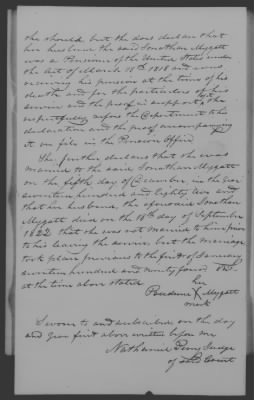 she should but she does declare that
her husband the said Jonathan Mygatt
was a Pensioner of the United States under
the Act of March 18th 1818 and was
receiving his pension at the time of his
death and for the particulars of his
service and the proof in support, she
respectfully refers the Department to his
declaration and the proof accompanying
it on file in the Pension Office
She further declares that she was
married to the said Jonathan Mygatt
on the fifth day of December in the year
seventeen hundred and eighty two and
that her husband, the aforesaid Jonathan
Mygatt died on the 18th day of September
1822 that she was not married to him prior
to his leaving the service but the marriage
took place previous to the first of January
seventeen hundred and ninety four viz.
at the time above stated
her
Prudence X Mygatt
mark
Sworn to and subscribed on the day
and year first above written before me
Nathaniel Perry Judge
of Court